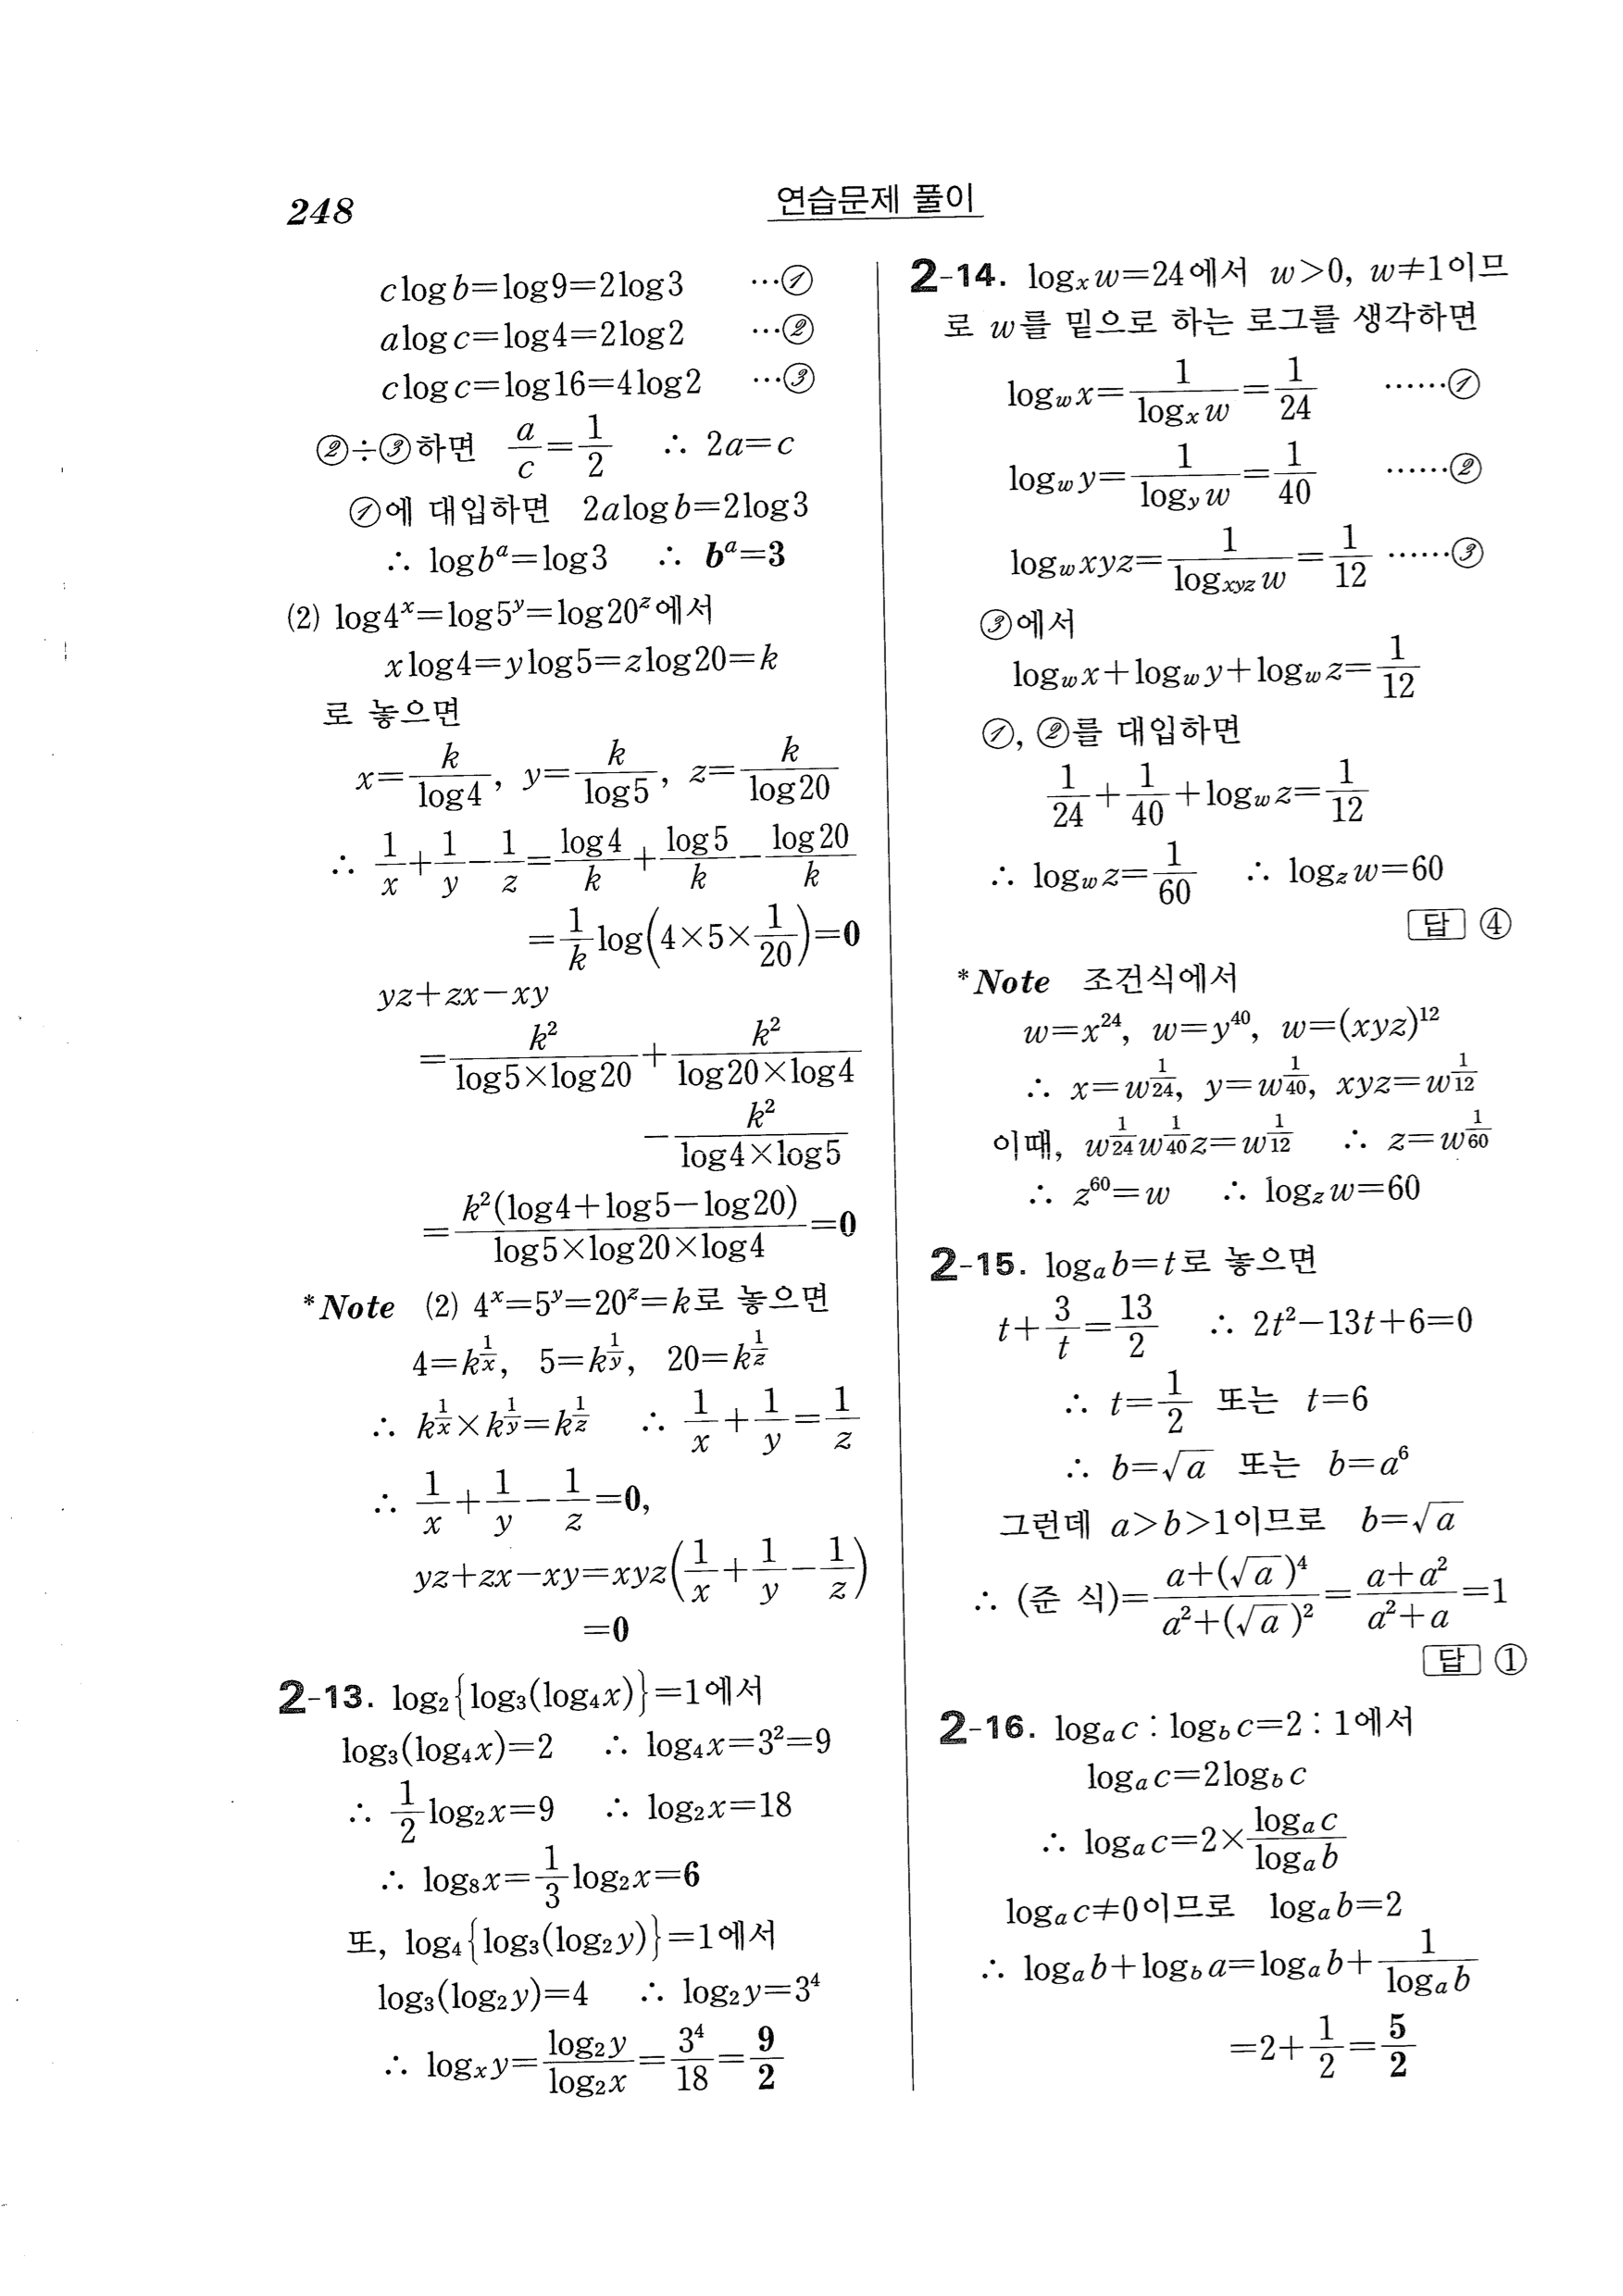 248
연습문제 풀이
c log b=log 9=2 log 3 …①
a log c=log 4=2 log 2 …②
c log c=log 16=4 log 2 …③
②÷③하면 a/c=1/2 ∴ 2a=c
①에 대입하면 2a log b=2 log 3
∴ log bᵃ=log 3 ∴ bᵃ=3
(2) log 4ˣ=log 5ʸ=log 20ᶻ에서
x log 4=y log 5=z log 20=k
로 놓으면
x=k/log 4, y=k/log 5, z=k/log 20
∴ 1/x+1/y−1/z=log 4/k+log 5/k−log 20/k
=1/k log(4×5×1/20)=0
yz+zx−xy
=k²/(log 5×log 20)+k²/(log 20×log 4)
−k²/(log 4×log 5)
=k²(log 4+log 5−log 20)/(log 5×log 20×log 4)=0
*Note (2) 4ˣ=5ʸ=20ᶻ=k로 놓으면
4=k^(1/x), 5=k^(1/y), 20=k^(1/z)
∴ k^(1/x)×k^(1/y)=k^(1/z) ∴ 1/x+1/y=1/z
∴ 1/x+1/y−1/z=0,
yz+zx−xy=xyz(1/x+1/y−1/z)
=0
2-13. log₂{log₃(log₄x)}=1에서
log₃(log₄x)=2 ∴ log₄x=3²=9
∴ 1/2 log₂x=9 ∴ log₂x=18
∴ log₈x=1/3 log₂x=6
또, log₄{log₃(log₂y)}=1에서
log₃(log₂y)=4 ∴ log₂y=3⁴
∴ logₓy=log₂y/log₂x=3⁴/18=9/2
2-14. logₓw=24에서 w>0, w≠1이므
로 w를 밑으로 하는 로그를 생각하면
log_w x=1/logₓw=1/24 ……①
log_w y=1/log_y w=1/40 ……②
log_w xyz=1/log_xyz w=1/12 ……③
③에서
log_w x+log_w y+log_w z=1/12
①, ②를 대입하면
1/24+1/40+log_w z=1/12
∴ log_w z=1/60 ∴ log_z w=60
답 ④
*Note 조건식에서
w=x²⁴, w=y⁴⁰, w=(xyz)¹²
∴ x=w^(1/24), y=w^(1/40), xyz=w^(1/12)
이때, w^(1/24)w^(1/40)z=w^(1/12) ∴ z=w^(1/60)
∴ z⁶⁰=w ∴ log_z w=60
2-15. logₐb=t로 놓으면
t+3/t=13/2 ∴ 2t²−13t+6=0
∴ t=1/2 또는 t=6
∴ b=√a 또는 b=a⁶
그런데 a>b>1이므로 b=√a
∴ (준 식)=(a+(√a)⁴)/(a²+(√a)²)=(a+a²)/(a²+a)=1
답 ①
2-16. logₐc : log_b c=2 : 1에서
logₐc=2log_b c
∴ logₐc=2×logₐc/logₐb
logₐc≠0이므로 logₐb=2
∴ logₐb+log_b a=logₐb+1/logₐb
=2+1/2=5/2